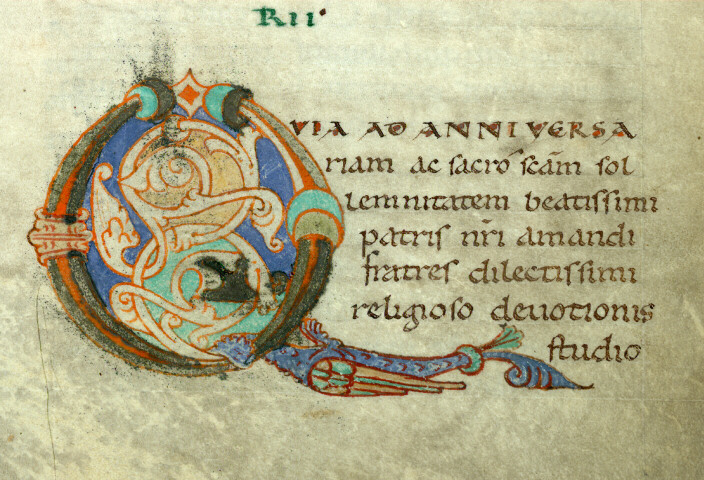 RII·
QVIA AD ANNIVERSA
riam ac sacrosc̄am sol
lemnitatem beatissimi
patris nr̄i amandi
fratres dilectissimi
religioso deuotionis
studio